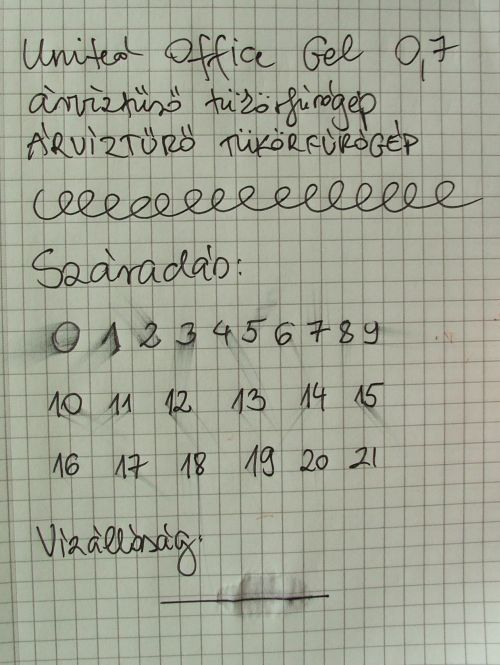 United Office Gel 0,7
árvíztűrő tükörfúrógép
ÁRVÍZTŰRŐ TÜKÖRFÚRÓGÉP
Száradás:
0 1 2 3 4 5 6 7 8 9
10 11 12 13 14 15
16 17 18 19 20 21
Vízállóság: